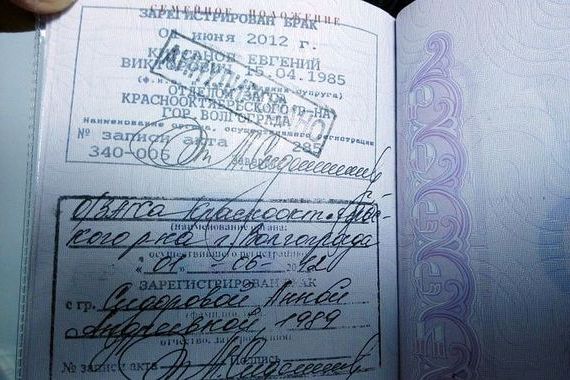 СЕМЕЙНОЕ ПОЛОЖЕНИЕ
ЗАРЕГИСТРИРОВАН БРАК
июня 2012 г.
ЕВГЕНИЙ
15.04.1985
КРАСНООКТЯБРЬСКОГО Р-НА
ГОР. ВОЛГОГРАДА
Наименование органа, осуществившего регистрацию
№ записи акта 285
340-006
ОЗАГСа Краснооктябрьс-
кого р-на г. Волгограда
(наименование органа,
осуществившего регистрацию)
ЗАРЕГИСТРИРОВАН БРАК
с гр. Сидоровой Анной
Андреевной, 1989
отчество, дата рождения
№ записи акта Подпись